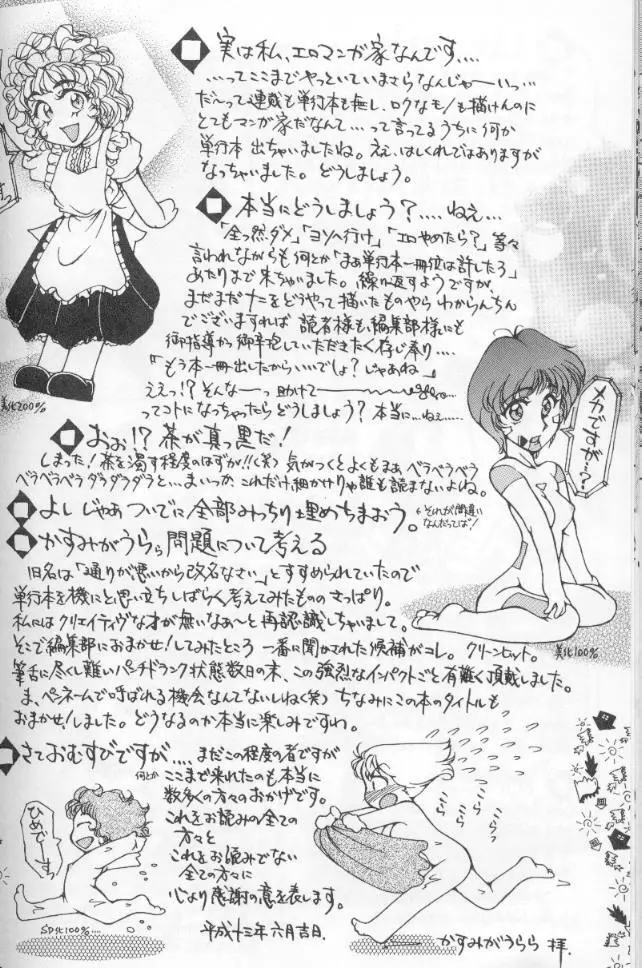 実は私、エロマンガ家なんです、...
...ってここまでやっといていまさらなんじゃーいっ...
だ〜って連載も単行本も無し、ロクなモノも描けんのに
とてもマンガ家だなんて...って言ってるうちに何か
単行本 出ちゃいましたね。ええ、はしくれではありますが
なっちゃいました。どうしましょう。
本当にどうしましょう？....ねえ...
「全っ然ダメ」「ヨソへ行け」「エロやめたら？」等々
言われながらも何とか「まぁ単行本一冊位は許したろ」
あたりまで来ちゃいました。繰り返すようですが、
まだまだナニをどうやって描いたものやら わからんちん
でございますれば 読者様も編集部様にも
御指導かつ御辛抱していただきたく存じ奉り....
「もう本一冊出したからいいでしょ？じゃあね」
ええっ!? そんなーっ 助けてー
ってコトになっちゃったらどうしましょう？ 本当に...ねえ......
美化200%
メカですが...？
おぉ!? 茶が真っ黒だ！
しまった！茶を濁す程度のはずが!!(笑) 気がつくとよくもまぁ、ベラベラベラ
ベラベラベラダラダラダラと...まいっか、これだけ細かけりゃ誰も読まないよね。
よし じゃあ ついでに全部みっちり埋めちまおう。
←それが間違いなんだってば！
かすみがうらら問題について考える
旧名は「通りが悪いから改名なさい」とすすめられていたので
単行本を機にと思い立ちしばらく考えてみたものの さっぱり。
私にはクリエイティヴな才が無いなぁ〜と 再認識しちゃいまして。
そこで編集部におまかせ！してみたところ 一番に聞かされた候補がコレ。クリーンヒット。
筆舌に尽くし難いパンチドランク状態数日の末、この強烈なインパクトごと有難く頂戴しました。
ま、ペンネームで呼ばれる機会なんてないしねぇ(笑) ちなみにこの本のタイトルも
おまかせ！しました。どうなるのか本当に楽しみですわ。
美化100%
さておむすびですが....まだこの程度の者ですが
何とか
ここまで来れたのも本当に
数多くの方々のおかげです。
これをお読みの全ての
方々と
これをお読みでない
全ての方々に
心より感謝の意を表します。
平成十三年六月吉日
ひめです。
SD化100%....
うらら
うらら
かすみがうらら 拝.